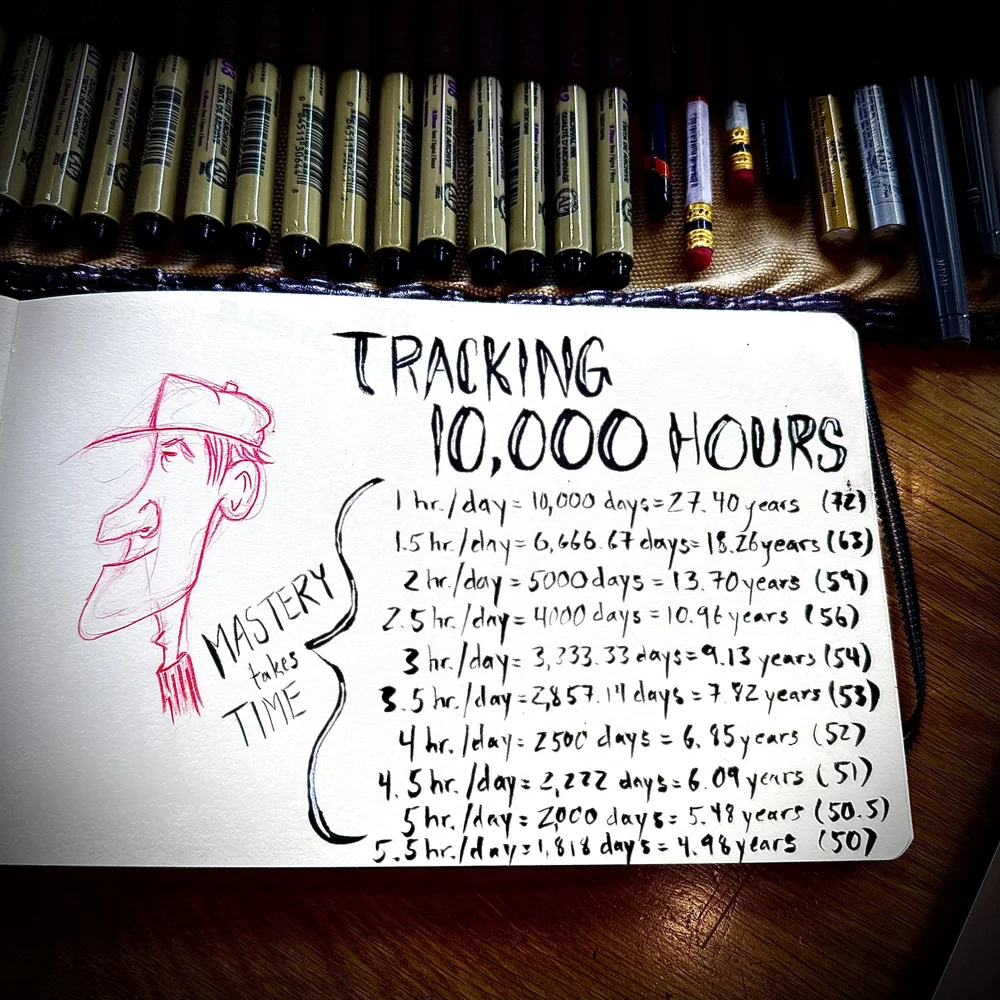 TRACKING
10,000 HOURS
1 hr./day = 10,000 days = 27.40 years (72)
1.5 hr./day = 6,666.67 days = 18.26 years (63)
2 hr./day = 5000 days = 13.70 years (59)
2.5 hr./day = 4000 days = 10.96 years (56)
3 hr./day = 3,333.33 days = 9.13 years (54)
3.5 hr./day = 2,857.14 days = 7.82 years (53)
4 hr./day = 2500 days = 6.85 years (52)
4.5 hr./day = 2,222 days = 6.09 years (51)
5 hr./day = 2,000 days = 5.48 years (50.5)
5.5 hr./day = 1,818 days = 4.98 years (50)
MASTERY
takes
TIME
JAPAN